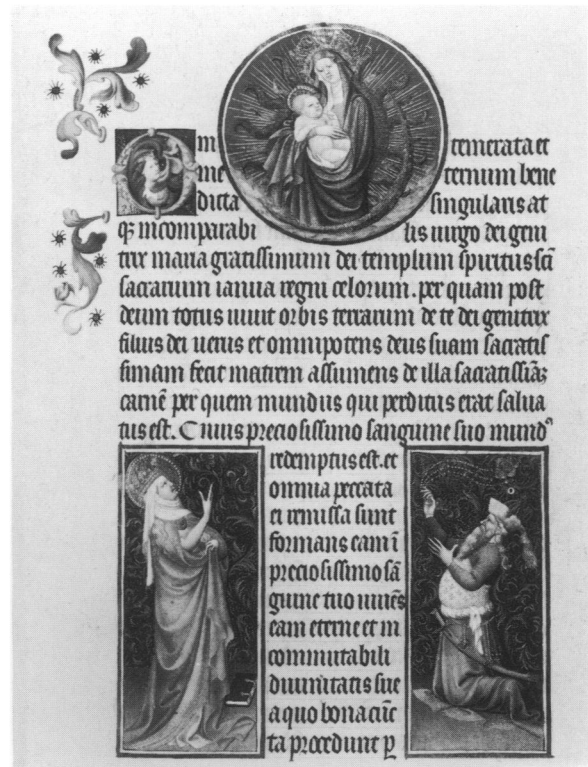 O in temerata et
in e ternum bene
dicta singularis at
qȝ incomparabi lis uirgo dei geni
trix maria gratissimum dei templum spiritus sci
sacrarium ianua regni celorum. per quam post
deum totus uiuit orbis terrarum de te dei genitrix
filius dei uerus et omnipotens deus suam sacratis
simam fecit matrem assumens de illa sacratissiāȝ
carnē per quem mundus qui perditus erat salua
tus est. Cuius preciosissimo sanguine suo mundꝰ
redemptus est. et
omnia peccata
ei remissa sunt
formans eam ī
preciosissimo sā
guine tuo uiuēs
eam eterne et in
commutabili
diuinitatis sue
a quo bona cūc
ta procedunt ꝑ